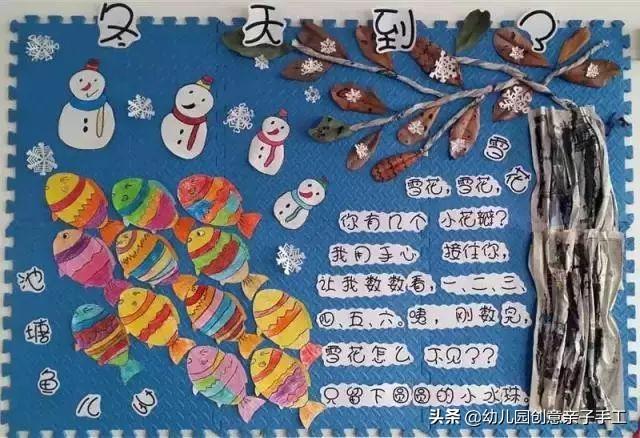 冬天到了
雪花
雪花,雪花,
你有几个 小花瓣?
我用手心 接住你,
让我数数看,一、二、三、
四、五、六。咦,刚数完,
雪花怎么 不见??
只留下圆圆的小水珠。
池塘鱼儿
头条 @幼儿园创意亲子手工